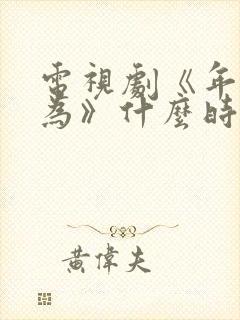 電視劇《年
為》什麼時
黃偉夫